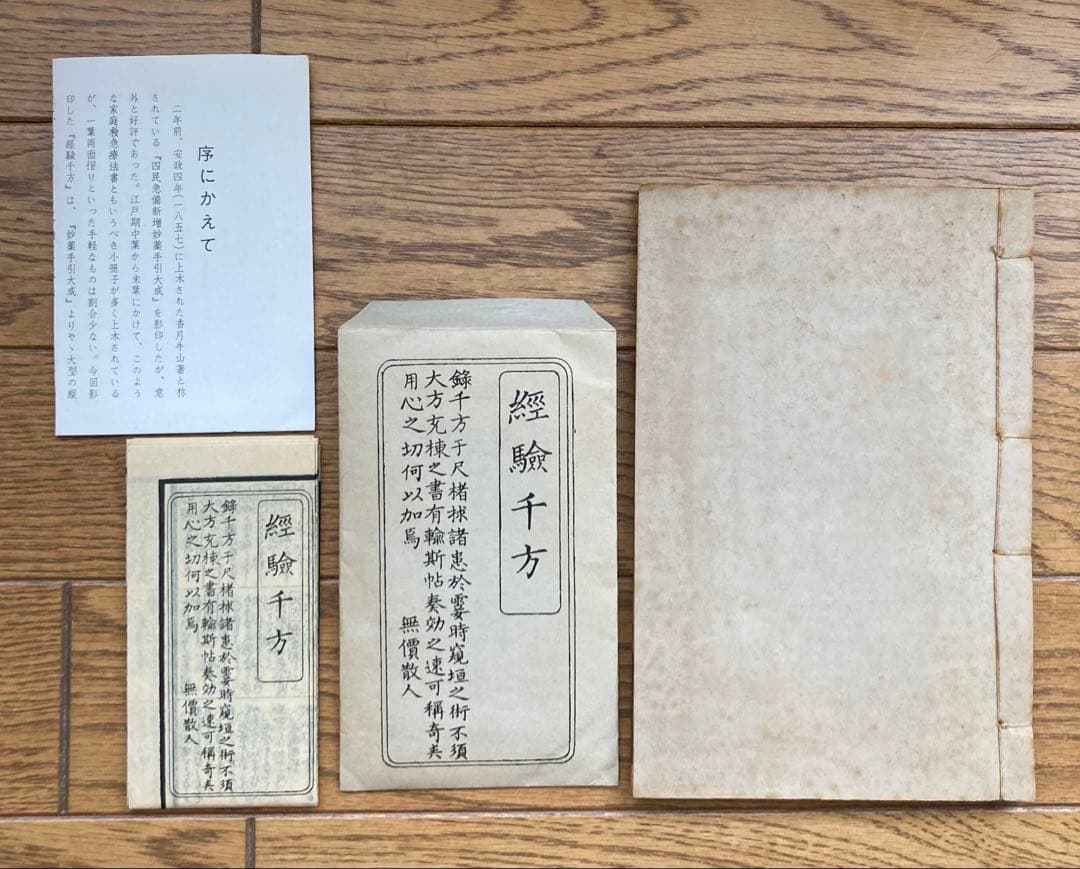 序にかえて
二年前、安政四年(一八五七)に上木された香月牛山著と称
されている『四民急備新増妙薬手引大成』を影印したが、意
外と好評であった。江戸期中葉から末葉にかけて、このよう
な家庭救急療法書ともいうべき小冊子が多く上木されている
が、一葉両面摺りといった手軽なものは割合少ない。今回影
印した『経験千方』は、『妙薬手引大成』よりやゝ大型の縦
經驗千方
錄千方于尺楮捄諸患於霎時窺垣之術不須
大方充棟之書有輪斯帖奏効之速可稱奇矣
用心之切何以加焉 無價散人
經驗千方
錄千方于尺楮捄諸患於霎時窺垣之術不須
大方充棟之書有輪斯帖奏効之速可稱奇矣
用心之切何以加焉 無價散人